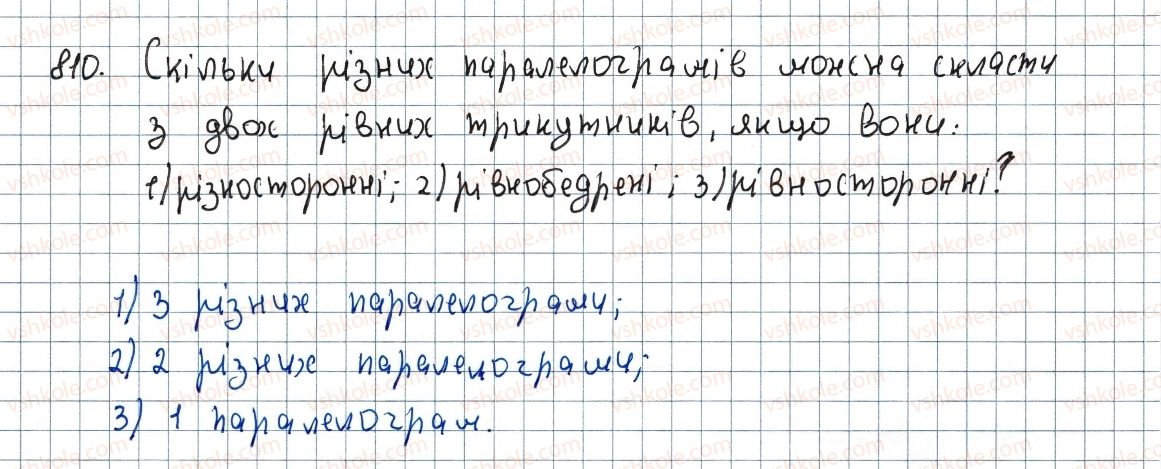 810. Скільки різних паралелограмів можна скласти
з двох рівних трикутників, якщо вони:
1) різносторонні; 2) рівнобедрені; 3) рівносторонні?
1) 3 різних паралелограми;
2) 2 різних паралелограми;
3) 1 паралелограм.